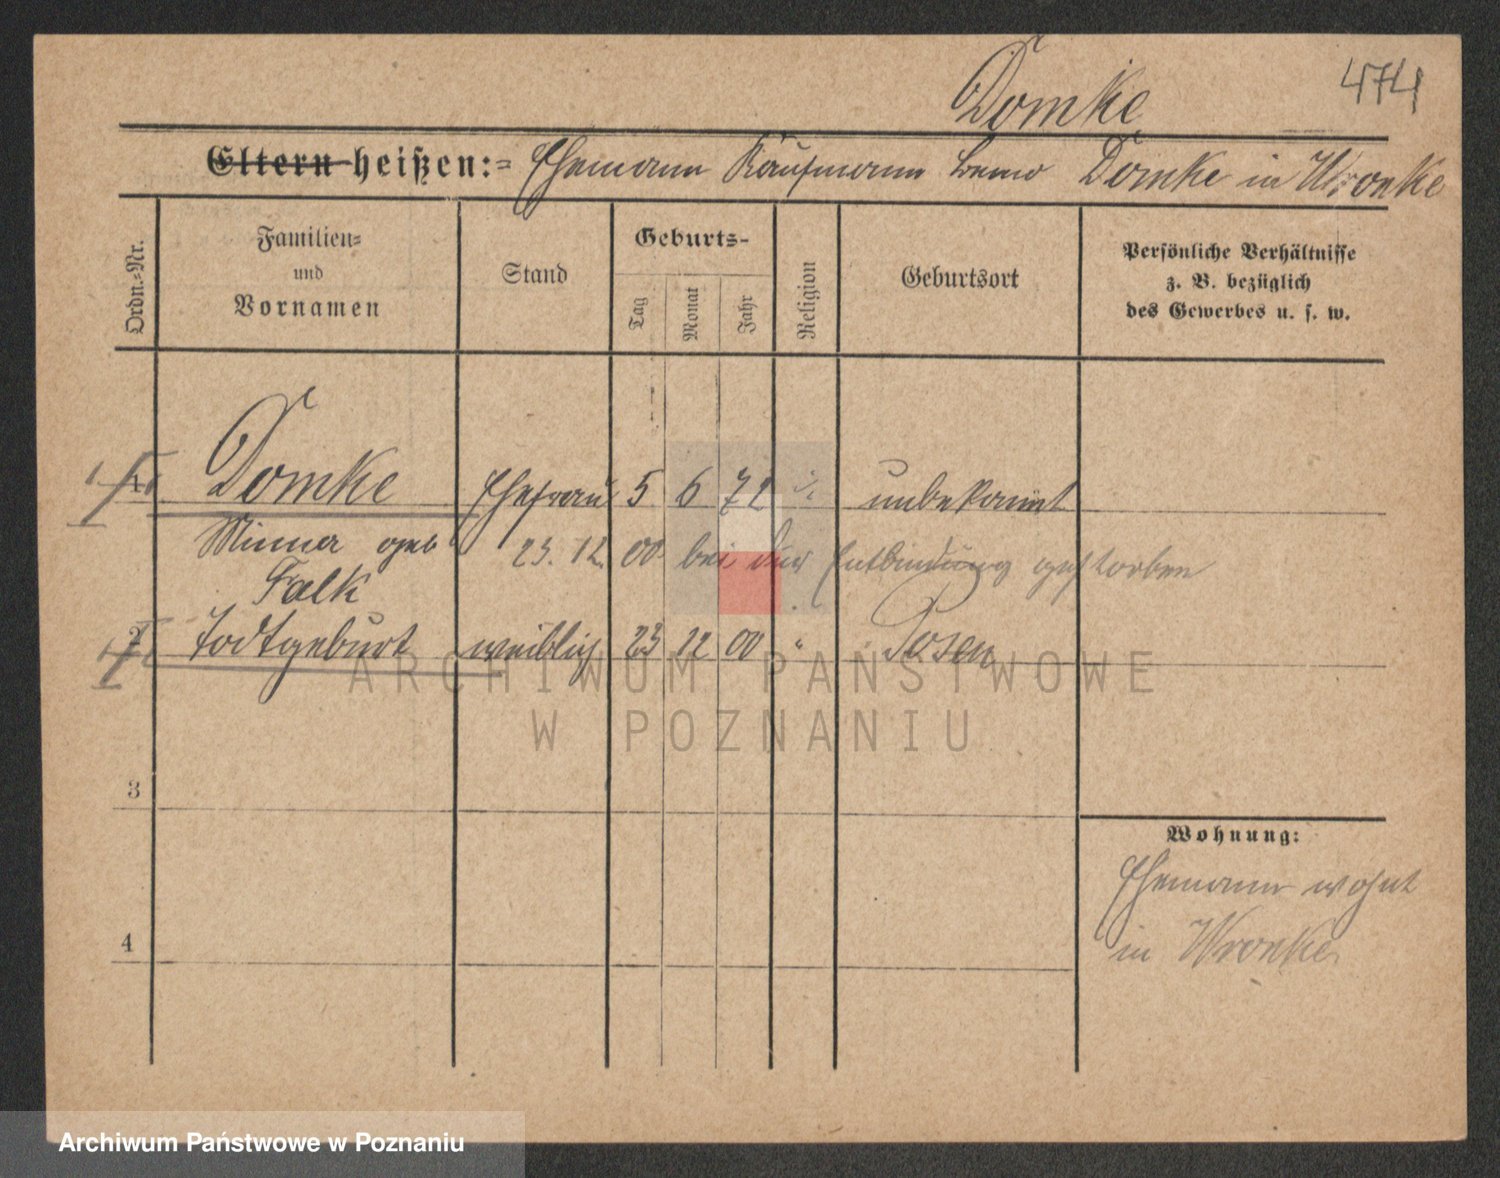 Domke
474
Eltern heißen:= Ehemann Kaufmann Domke in Wronke
Ordn.-Nr.
Familien=
und
Vornamen
Stand
Geburts-
Tag
Monat
Jahr
Religion
Geburtsort
Persönliche Verhältnisse
z. B. bezüglich
des Gewerbes u. s. w.
1 Domke Ehefrau 5 6 72 unbekannt
Minna geb
Falk
23. 12. 00 bei der Entbindung gestorben
2 Todtgeburt weiblich 23 12 00 " Posen
3
4
Wohnung:
Ehemann wohnt
in Wronke
ARCHIWUM PAŃSTWOWE
W POZNANIU
Archiwum Państwowe w Poznaniu